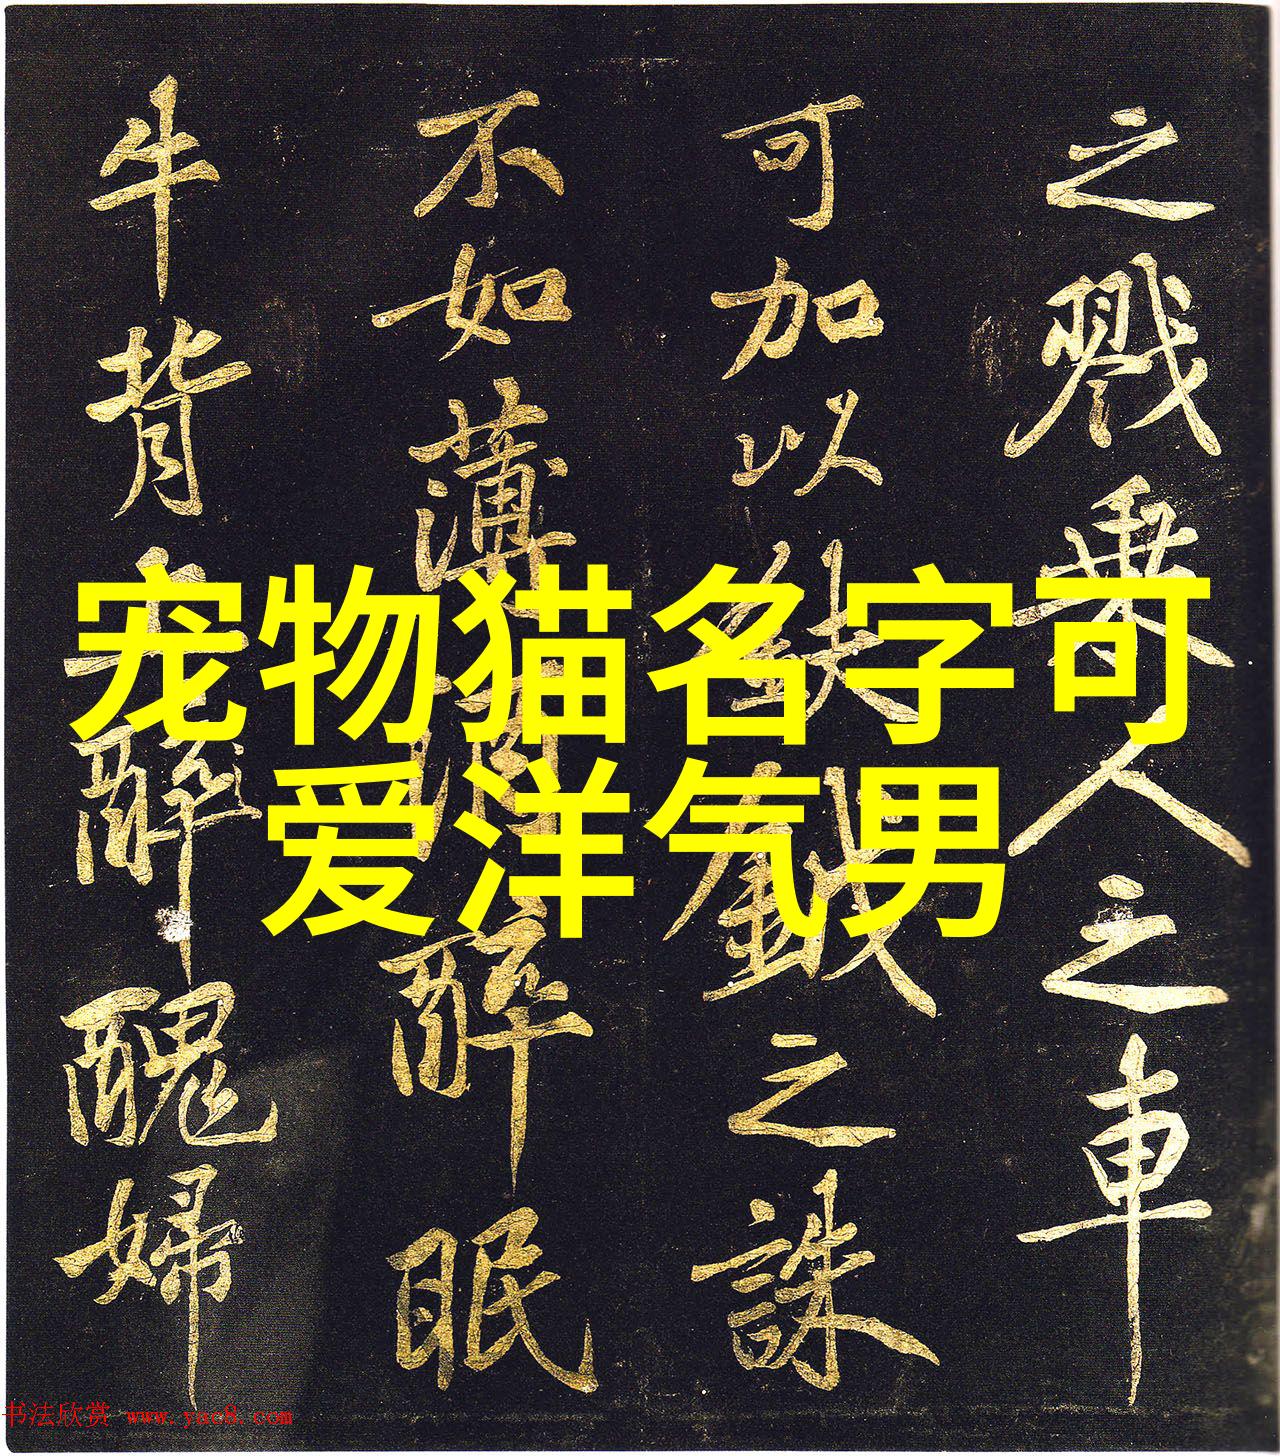 宠物猫名字可
爱洋气男
之戮乘人之車
可加以鈇鉞之誅
不如薄酒醉眠
牛背上醉醜婦
书法欣赏 www.yac8.com